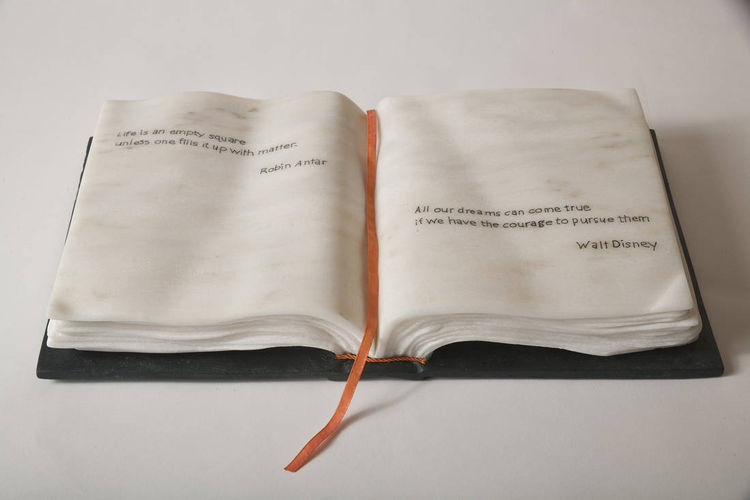 Life is an empty square
unless one fills it up with matter.
Robin Antar
All our dreams can come true
if we have the courage to pursue them
Walt Disney